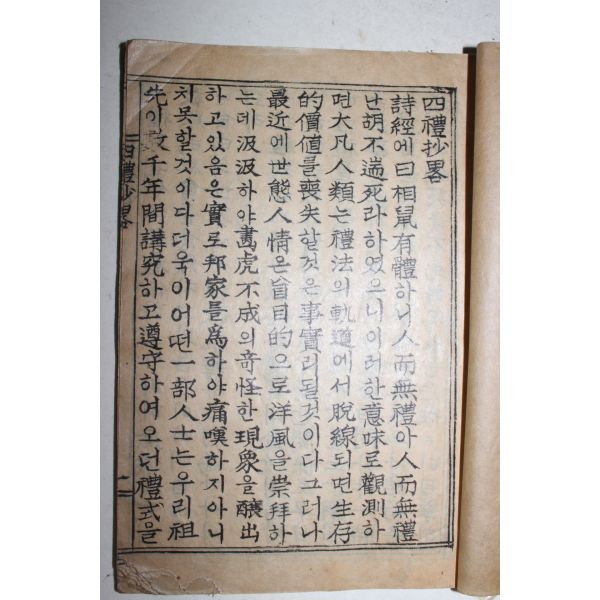 四禮抄畧
詩經에曰相鼠有體하니人而無禮아人而無禮
난胡不遄死라하였으니이러한意味로觀測하
면大凡人類는禮法의軌道에서脫線되면生存
的價値를喪失할것은事實리될것이다그러나
最近에世態人情은盲目的으로洋風을崇拜하
는데汲汲하야畵虎不成의奇怪한現象을釀出
하고있음은實로邦家를爲하야痛嘆하지아니
치못할것이다더욱이어떤一部人士는우리祖
先이數千年間講究하고遵守하여오던禮式을
四禮抄畧